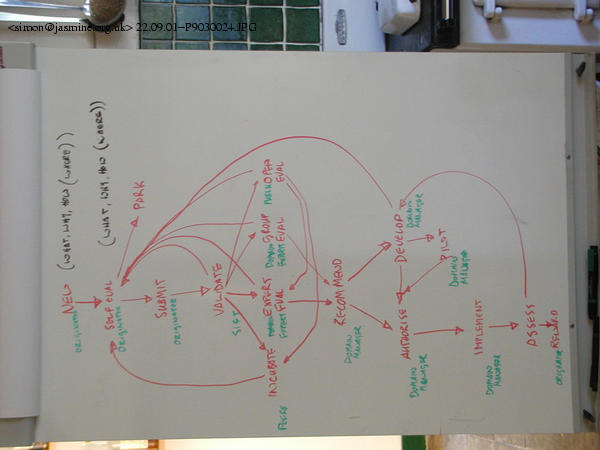 <simon@jasmine.org.uk> 22.09.01-P9030024.JPG
NEW (WHAT, WHY, HOW (WHERE))
ORIGINATOR
SELF EVAL (WHAT, WHY, HOW (WHERE))
ORIGINATOR
PARK
SUBMIT
ORIGINATOR
VALIDATE
INCUBATE
EXPERT
EVAL
DOMAIN
EXPERT
GROUP
EVAL
DOMAIN
EXPERT
OPEN
EVAL
PUBLIC
RECOMMEND
DOMAIN
MANAGER
AUTHORISE
DOMAIN
MANAGER
DEVELOP
DOMAIN
MANAGER
PILOT
DOMAIN
MANAGER
IMPLEMENT
DOMAIN
MANAGER
ASSESS
REWARD
ORIGINATOR